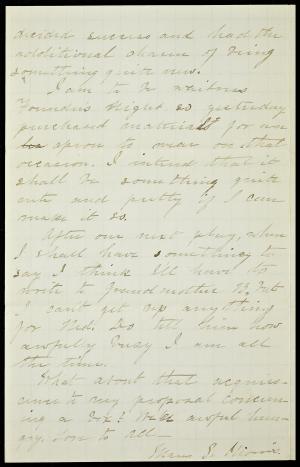 decided success and had the
additional charm of being
something quite new.
I am to be waitress
Founder's Night so yesterday
purchased material for an
apron to wear on that
occasion. I intend that it
shall be something quite
cute and pretty if I can
make it so.
After our next play, when
I shall have something to
say I think I'll have to
write to grandmother B. but
I can't get up anything
for Ned. Do tell him how
awfully busy I am all
the time.
What about that acquies-
cence to my proposal concern-
ing a box? Will awful hun-
gry. Love to all—